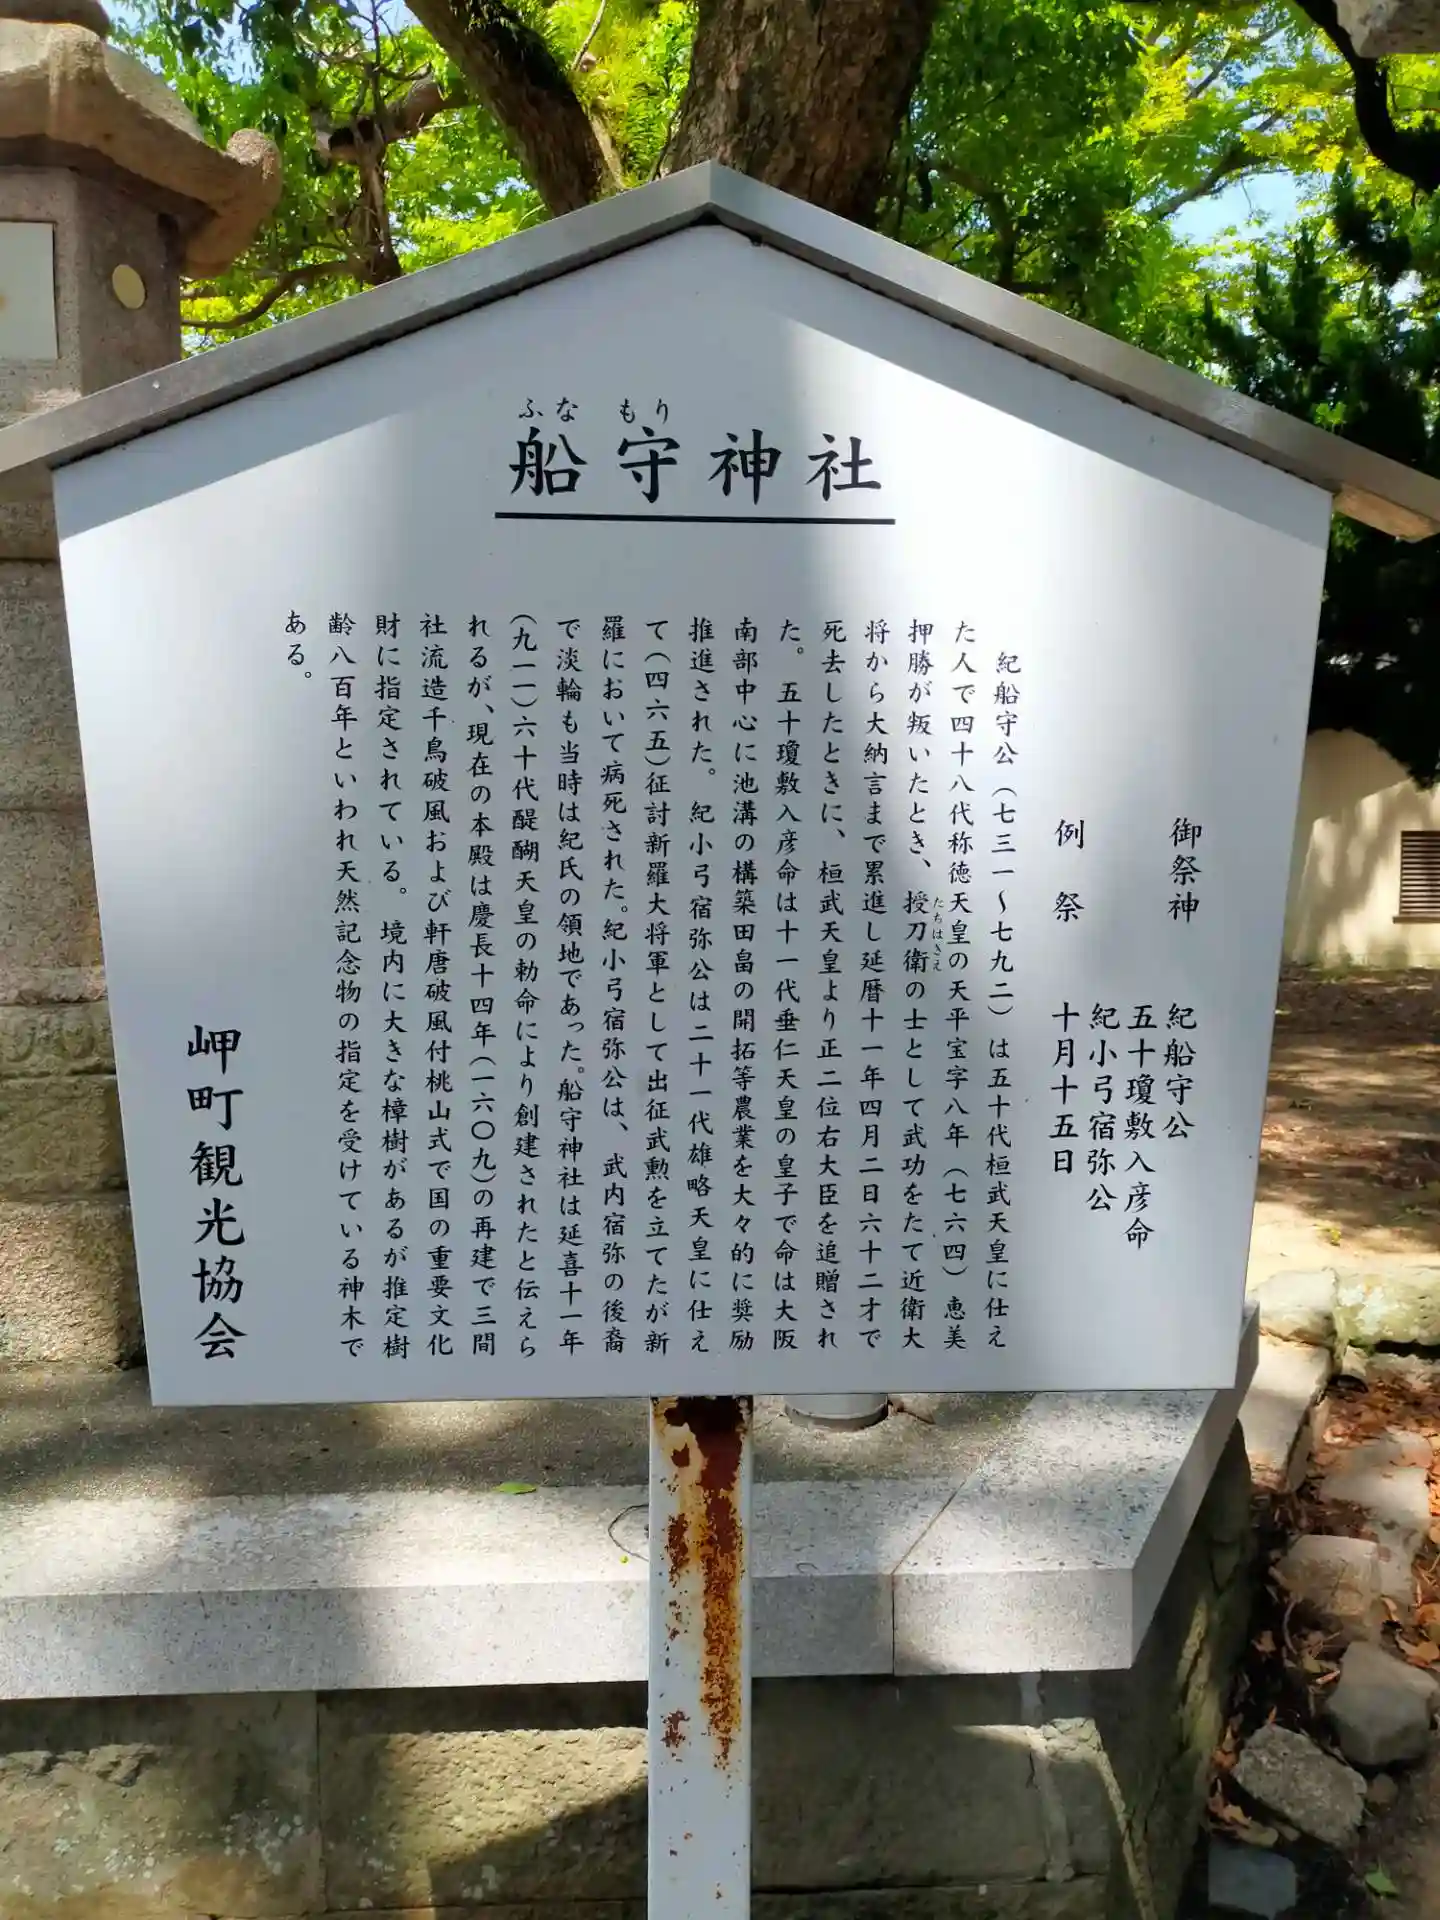 ふな もり
船守神社
御祭神 紀船守公
五十瓊敷入彦命
紀小弓宿弥公
例祭 十月十五日
紀船守公（七三一〜七九二）は五十代桓武天皇に仕え
た人で四十八代称徳天皇の天平宝字八年（七六四）恵美
押勝が叛いたとき、授刀衛の士として武功をたて近衛大
たちはきえ
将から大納言まで累進し延暦十一年四月二日六十二才で
死去したときに、桓武天皇より正二位右大臣を追贈され
た。 五十瓊敷入彦命は十一代垂仁天皇の皇子で命は大阪
南部中心に池溝の構築田畠の開拓等農業を大々的に奨励
推進された。 紀小弓宿弥公は二十一代雄略天皇に仕え
て（四六五）征討新羅大将軍として出征武勲を立てたが新
羅において病死された。紀小弓宿弥公は、武内宿弥の後裔
で淡輪も当時は紀氏の領地であった。船守神社は延喜十一年
（九一一）六十代醍醐天皇の勅命により創建されたと伝えら
れるが、現在の本殿は慶長十四年（一六〇九）の再建で三間
社流造千鳥破風および軒唐破風付桃山式で国の重要文化
財に指定されている。 境内に大きな樟樹があるが推定樹
齢八百年といわれ天然記念物の指定を受けている神木で
ある。
岬町観光協会